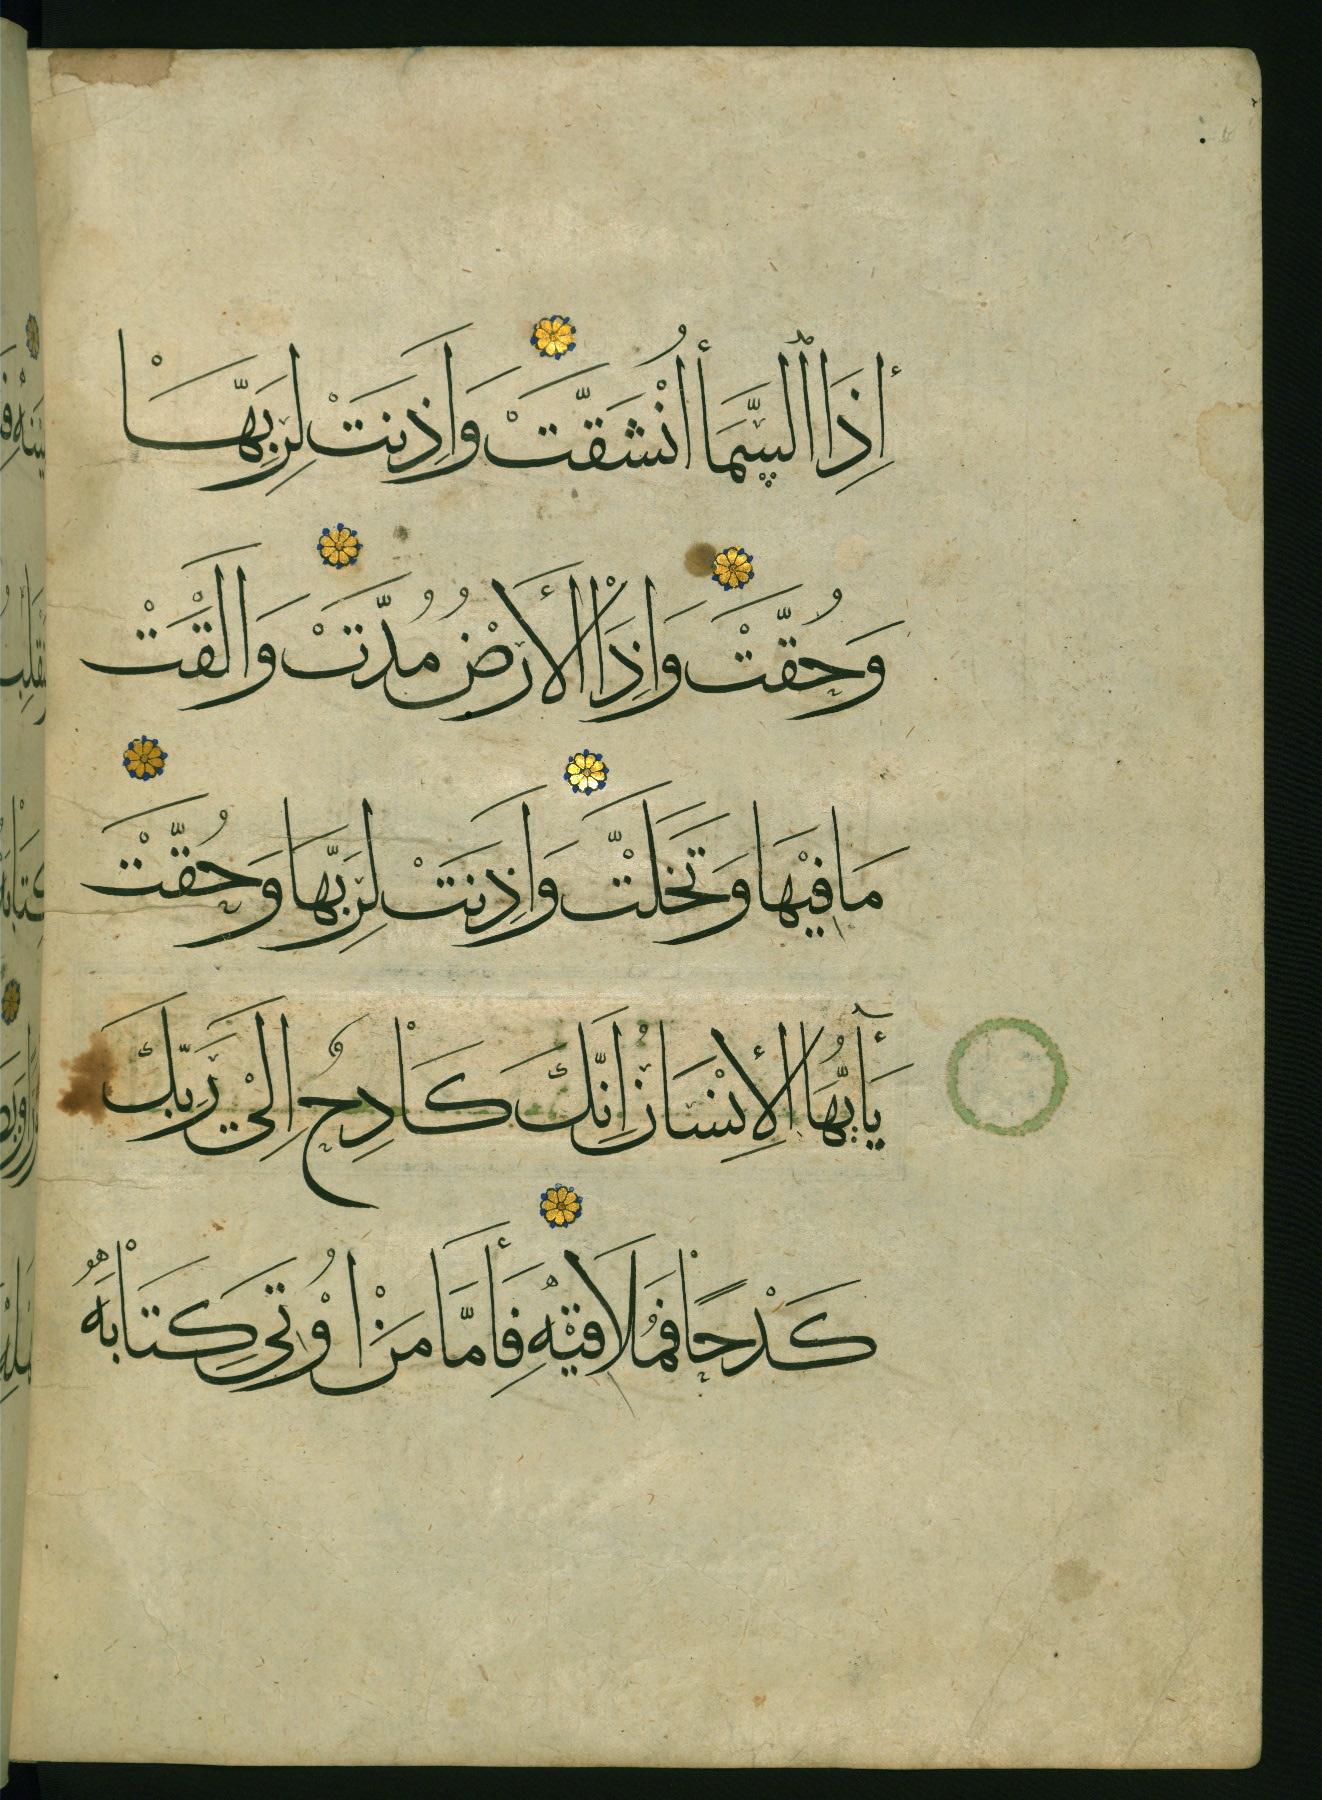 إِذَا ٱلسَّمَأ ٱنْشَقَّتْ وَاَذِنَتْ لِرَبِّهَا
وَحُقَّتْ وَاِذَا الْأَرْضُ مُدَّتْ وَاَلْقَتْ
مَا فِيْهَا وَتَخَلَّتْ وَاَذِنَتْ لِرَبِّهَا وَحُقَّتْ
يَآأَيُّهَا الْأِنْسَانُ اِنَّكَ كَادِحٌ اِلَيْ رَبِّكَ
كَدْحًا فَمُلَاقِيْهِ فَأَمَّا مَنْ اُوْتِيَ كِتَابَهُ